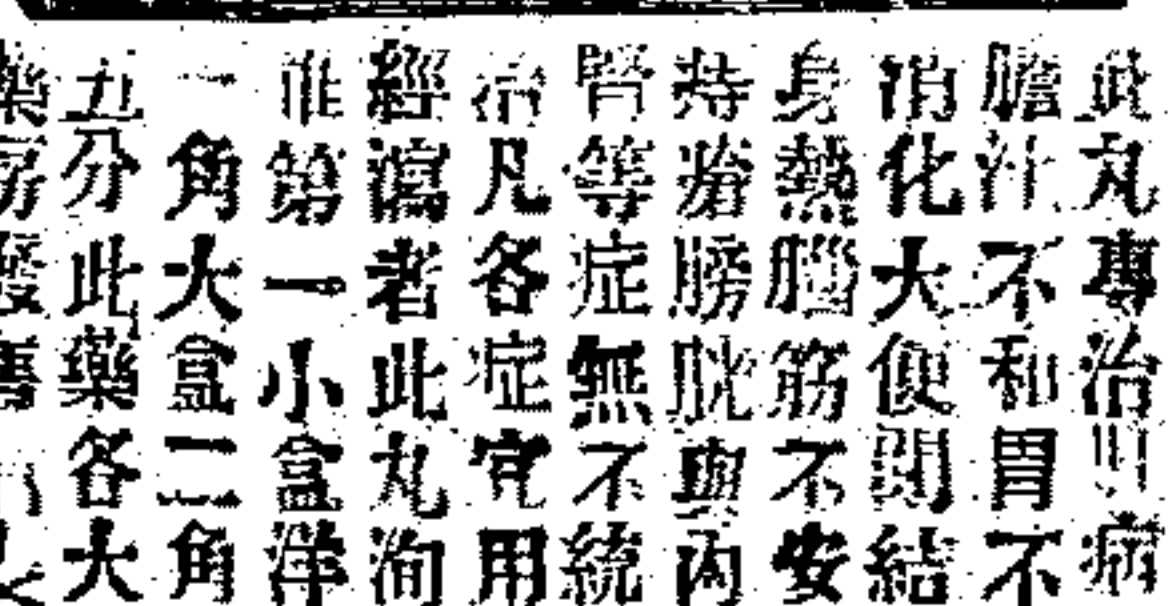 此丸專治肝病
膽汁不和胃不
消化大便閉結
身熱腦筋不安
痔瘡膀胱與內
腎等症無不統
治凡各症宜用
經瀉者此丸洵
惟第一小盒洋
一角大盒二角
五分此藥各大
藥房發售